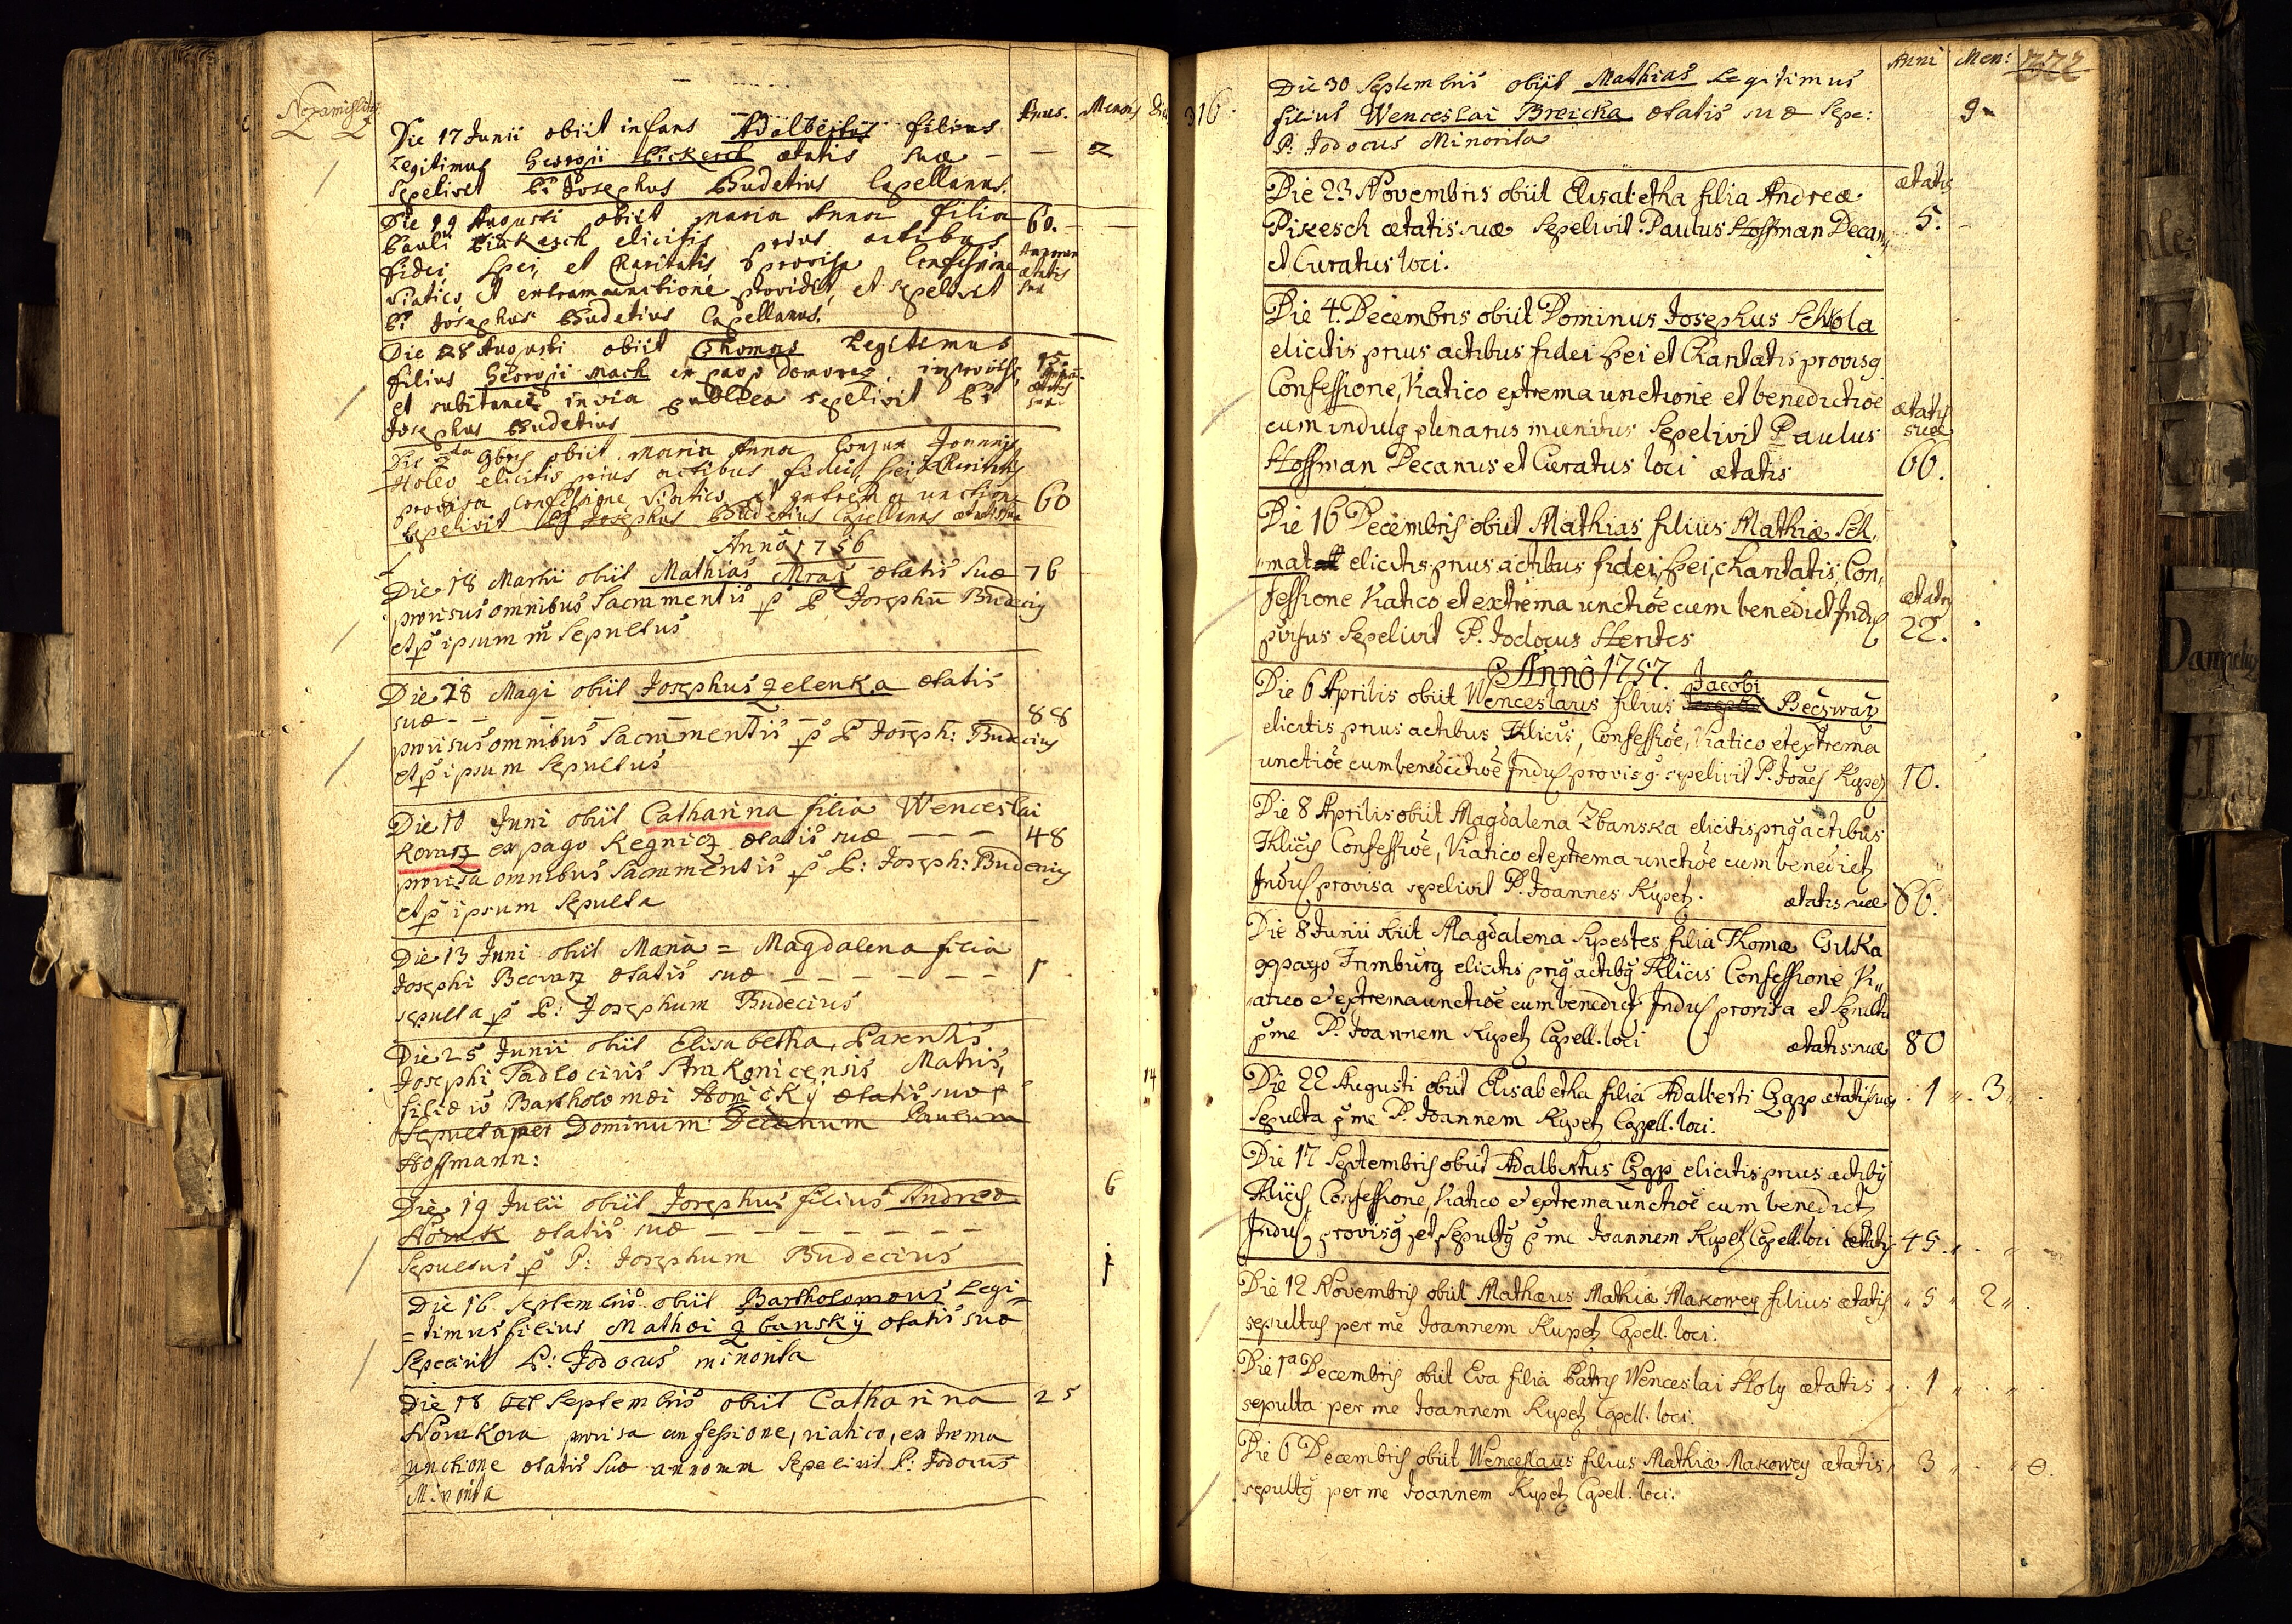 Anus. Mensis Dies
Die 17 Junii obiit infans Adalbertus filius
Legitimus Georgii Pickesch ætatis suæ — — 2
Sepelivit P: Josephus Budetius Capellanus.
Die 19 Augusti obiit Maria Anna filia 60. — —
Pauli elicitis prius actibus
fidei, spei, et Charitatis provisa Confessione Annorum
viatico et extrema unctione providit, et sepelivit ætatis suæ
P: Josephus Budetius Capellanus.
Die 28 Augusti obiit Thomas Legitimus
filius Georgii Mach ex pago improvise, 15
et subitanee in via publica sepelivit P: ætatis suæ
Josephus Budetius
Die 9bris obiit Maria Anna Conjux Joannis
Holey elicitis prius actibus fidei, spei, Charitatis
provisa Confessione viatico et extrema unctione 60
Sepelivit P Josephus Budetius Capellanus ætatis suæ
Anno 1756
Die 18 Martii obiit Mathias Mraz ætatis suæ 76
provisus omnibus Sacramentis p P Josephū Budecig
et p ipsum Sepultus
Die 28 Magi obiit Josephus Zelenka ætatis
suæ — — — — — 88
provisus omnibus Sacramentis p P Joseph: Budecius
et p ipsum Sepultus
Die 10 Juni obiit Catharina filia Wenceslai
Kovarz ex pago Regnicz ætatis suæ — — — 48
provisa omnibus Sacramentis p P: Joseph: Budecius
et p ipsum Sepulta
Die 13 Juni obiit Maria = Magdalena filia
Josephi Becwarz ætatis suæ — — — — — — 1
sepulta p P: Josephum Budecius
Die 25 Junii obiit Elisabetha Parentis
Josephi Padlo civis Strakonicensis Matris, 14
filiæ Bartholomæi ætatis suæ
Sepulta per Dominum Decanum Paulum
Hoffmann:
Die 19 Julii obiit Josephus filius Andreæ 6
Nowak ætatis suæ — — — — — — —
Sepultus p P: Josephum Budecius
Die 16 Septembris obiit Bartholomæus Legi=
=timus filius Mathæi Zbansky ætatis suæ
Sepelivit P: Jodocus minorita
Die 18 Septembris obiit Catharina 25
Nowakova provisa confessione, viatico, extrema
unctione ætatis suæ annorum Sepelivit P: Jodocus
Minorita
316. Anni Men:
Die 30 Septembris obiit Mathias Legitimus
filius Wenceslai Breicka ætatis suæ Sepe: 9
P: Jodocus Minorita
Die 23 Novembris obiit Elisabetha filia Andreæ ætatis
Pikesch ætatis suæ Sepelivit Paulus Hoffman Decan, 5.
et Curatus loci.
Die 4. Decembris obiit Dominus Josephus Schkola
elicitis prius actibus fidei spei et Charitatis provisg
Confessione, Viatico extrema unctione et benedictiõe ætatis
cum indulg plenarus munitus Sepelivit Paulus suæ
Hoffman Decanus et Curatus loci ætatis 66.
Die 16 Decembris obiit Mathias filius Mathiæ Sch,
,,mat elicitis prius actibus fidei, spei, charitatis, Con,
fessione Viatico et extrema unctiõe cum benedict Indul ætatis
Sepelivit P. Jodocus 22.
Anno 1757.
Jacobi
Die 6 Aprilis obiit Wenceslaus filius Josephi Beczwarz
elicitis prius actibus Thlicis, Confessiõe, Viatico et extrema
unctiõe cum benedictiõe Indul provisg sepelivit P. Joães Kupetz 10.
Die 8 Aprilis obiit Magdalena Zbanska elicitis prig actibus
Thlicis Confessiõe, Viatico et extrema unctiõe cum benedict
Indul provisa sepelivit P. Joannes Kupetz. ætatis suæ 66.
Die 8 Junii obiit Magdalena Sypestes filia Thomæ Cžilka
ex pago Frimburg elicitis prig actibg Thlicis Confessione Vi,,
atico et extrema unctiõe cum benedict Indul provisa et Sepulta
p me P. Joannem Kupetz Capell. loci ætatis suæ 80
Die 22 Augusti obiit Elisabetha filia Adalberti Czapp ætatis suæ 1 ,, 3 ,,
Sepulta p me P. Joannem Kupetz Capell. loci.
Die 17 Septembris obiit Adalbertus Czap elicitis prius actibg
Thlicis, Confessione, Viatico et extrema unctiõe cum benedict
Indul provisg et Sepultg p me Joannem Kupetz Capell. loci ætatis 45. ,, ,,
Die 12 Novembris obiit Mathæus Mathiæ Makowey filius ætatis ,, 5 ,, 2 ,,
sepultus per me Joannem Kupetz Capell. loci.
Die 1a Decembris obiit Eva filia Patris Wenceslai Holy ætatis ,, 1 ,, ,,
sepulta per me Joannem Kupetz Capell. loci.
Die 6 Decembris obiit Wenceslaus filius Mathiæ Makowey ætatis ,, 3 ,, ,,
sepultg per me Joannem Kupetz Capell. loci.